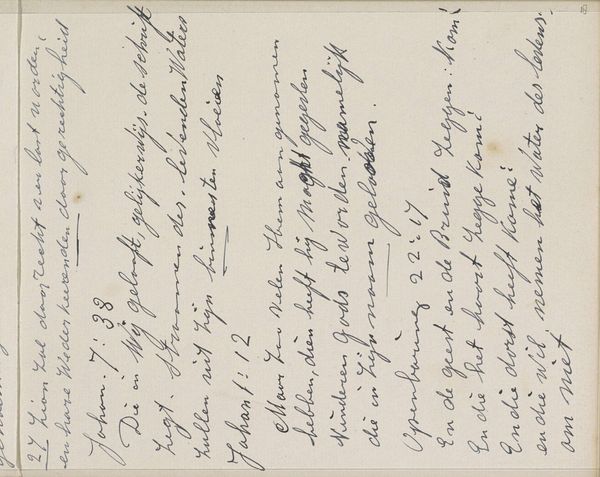 27 Zion zal door recht verlost worden:
en hare Wederkeerenden door gerechtigheid
Johan. 7:38
Die in Mij gelooft, gelijkerwijs de schrift
zegt. Stroomen des levenden Waters
zullen uit zijn binnensten vloeien
Johan 1:12
Maar zoo velen Hem aangenomen
hebben, dien heeft hij Macht gegeven
Kinderen Gods te worden namelijk
die in zijn naam gelooven.
Openbaring 22:17
En de geest en de Bruid zeggen: Kom!
En die het hoort zegge Kom!
En die dorst heeft Kome!
en die wil, nemen het Water des levens.
om niet